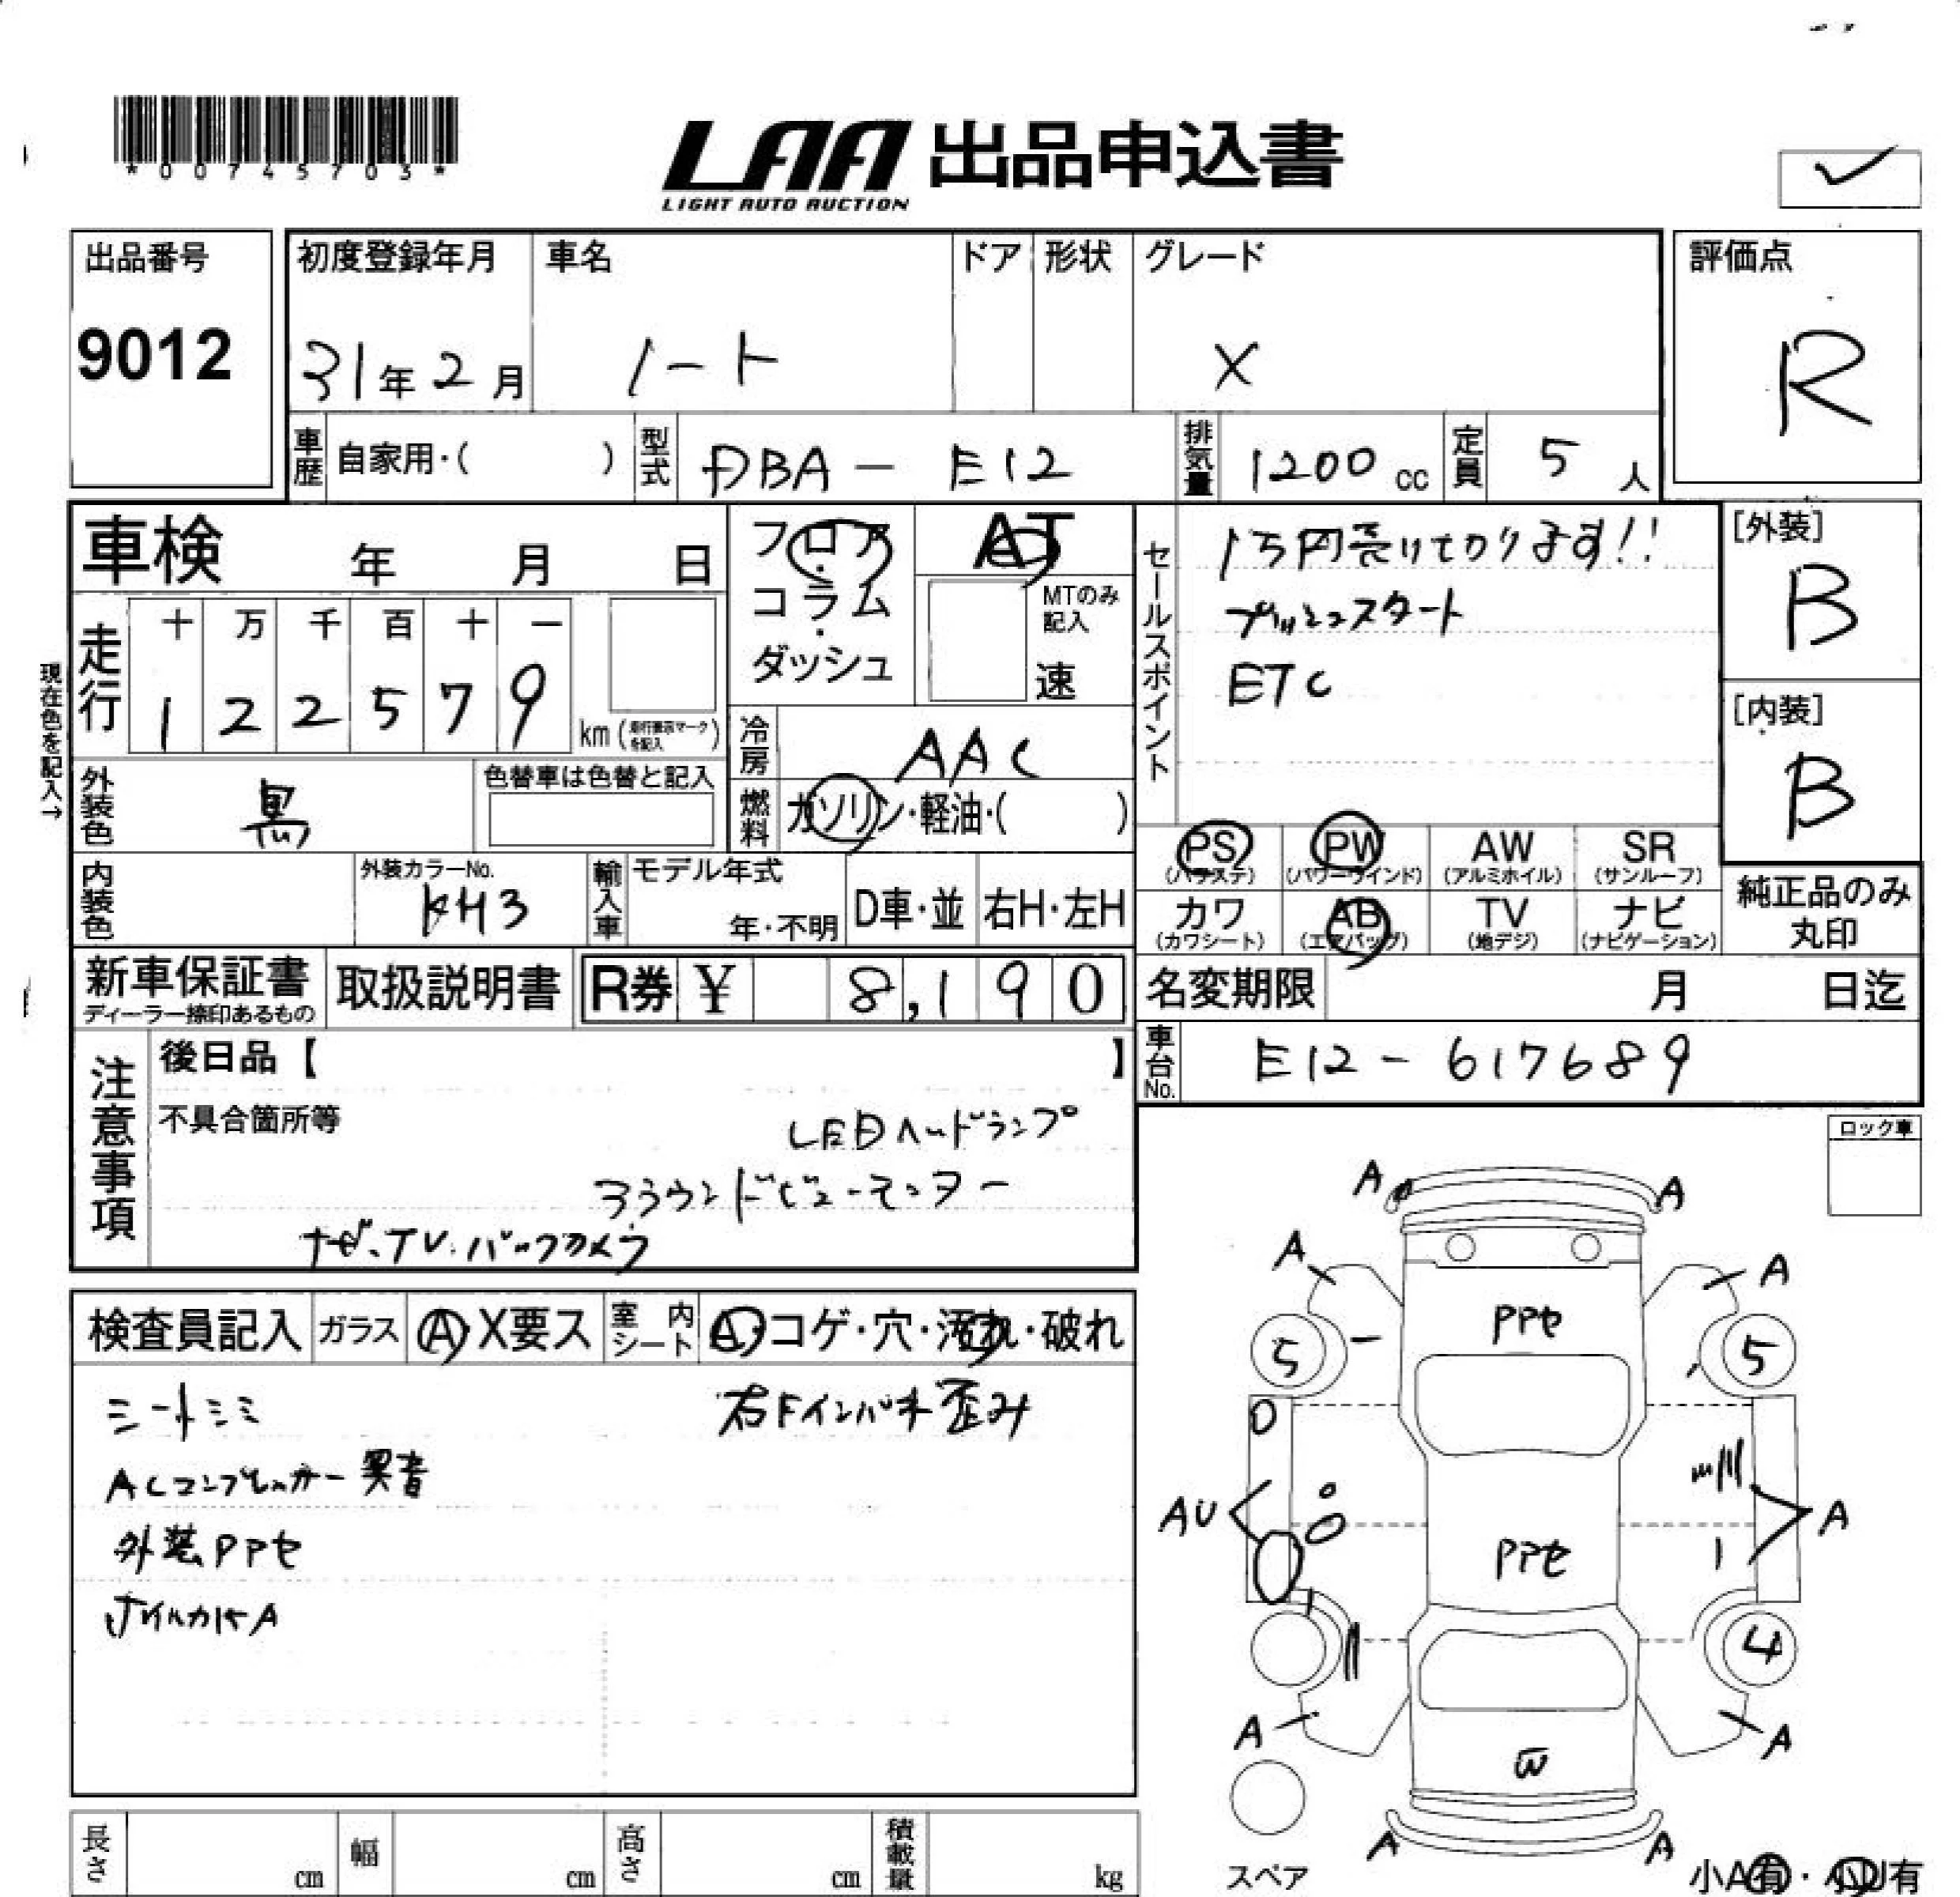 *00745703*
LAA 出品申込書
LIGHT AUTO AUCTION
出品番号
9012
初度登録年月
31年2月
車名
ノート
ドア
形状
グレード
X
評価点
R
車歴 自家用・( )
型式 DBA-E12
排気量 1200cc
定員 5人
車検 年 月 日
フロア・コラム・ダッシュ
AT
MTのみ記入
速
セールスポイント
1万円売けてかります!!
プッシュスタート
ETC
[外装]
B
[内装]
B
現在色を記入→
走行
十 万 千 百 十 一
1 2 2 5 7 9
km
冷房 AAC
燃料 ガソリン・軽油・( )
外装色 黒
色替車は色替と記入
PS (パワステ)
PW (パワーウインド)
AW (アルミホイル)
SR (サンルーフ)
カワ (カワシート)
AB (エアバッグ)
TV (地デジ)
ナビ (ナビゲーション)
純正品のみ丸印
内装色
外装カラーNo.
KH3
輸入車
モデル年式
年・不明
D車・並
右H・左H
新車保証書
ディーラー捺印あるもの
取扱説明書
R券 ¥ 8,190
名変期限 月 日迄
車台No. E12-617689
注意事項
後日品【 】
不具合箇所等
LEDヘッドランプ
アラウンドビューモニター
ナビ、TV、バックカメラ
ロック車
検査員記入
ガラス
A・X要ス
室内シート
A・コゲ・穴・汚れ・破れ
シートシミ
右Fインパネ歪み
ACコンプレッサー異音
外装PPセ
ホイルカバーA
A A
A A
PPセ
5 5
AU A
PPセ
4
A A
W
A A
スペア
小A有・小U有
長さ cm
幅 cm
高さ cm
積載量 kg